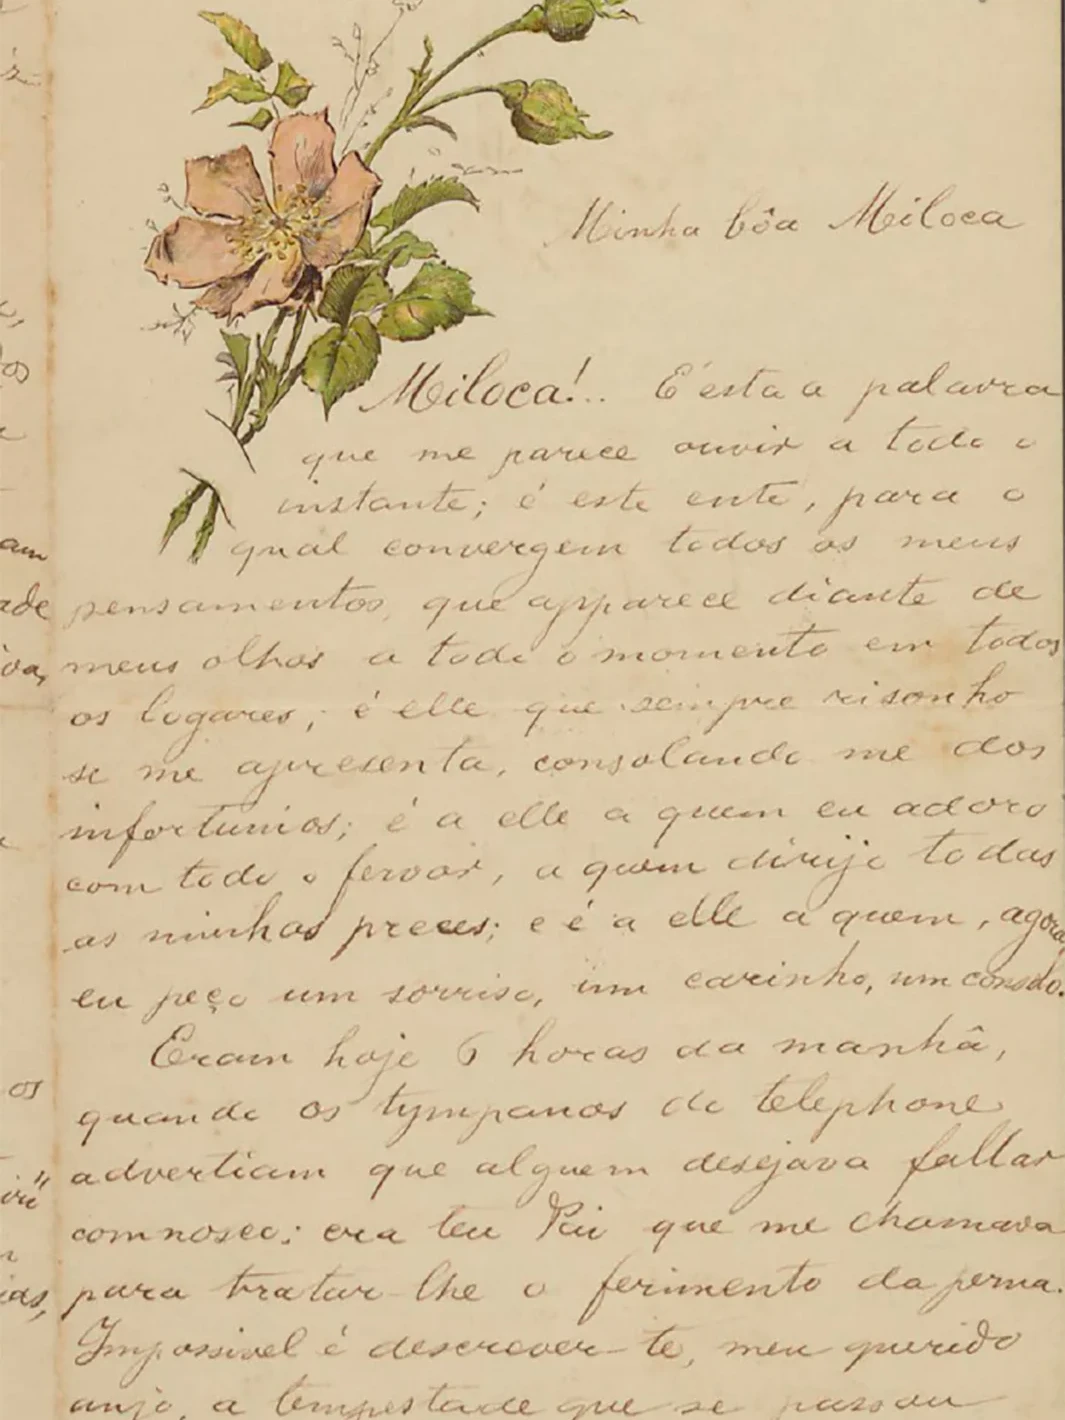 Minha bôa Miloca
Miloca!.. E' esta a palavra
que me parece ouvir a todo o
instante; é este ente, para o
qual convergem todos os meus
pensamentos, que apparece diante de
meus olhos a todo o momento em todos
os logares; é elle que sempre risonho
se me apresenta, consolando me dos
infortunios; é a elle a quem eu adoro
com todo o fervor, a quem dirijo todas
as minhas preces; e é a elle a quem, agora,
eu peço um sorriso, um carinho, um consolo.
Eram hoje 6 horas da manhã,
quando os tympanos do telephone
advertiam que alguem desejava fallar
comnosco: era teu Pai que me chamava
para tratar-lhe o ferimento da perna.
Impossivel é descrever-te, meu querido
anjo, a tempestade que se passou